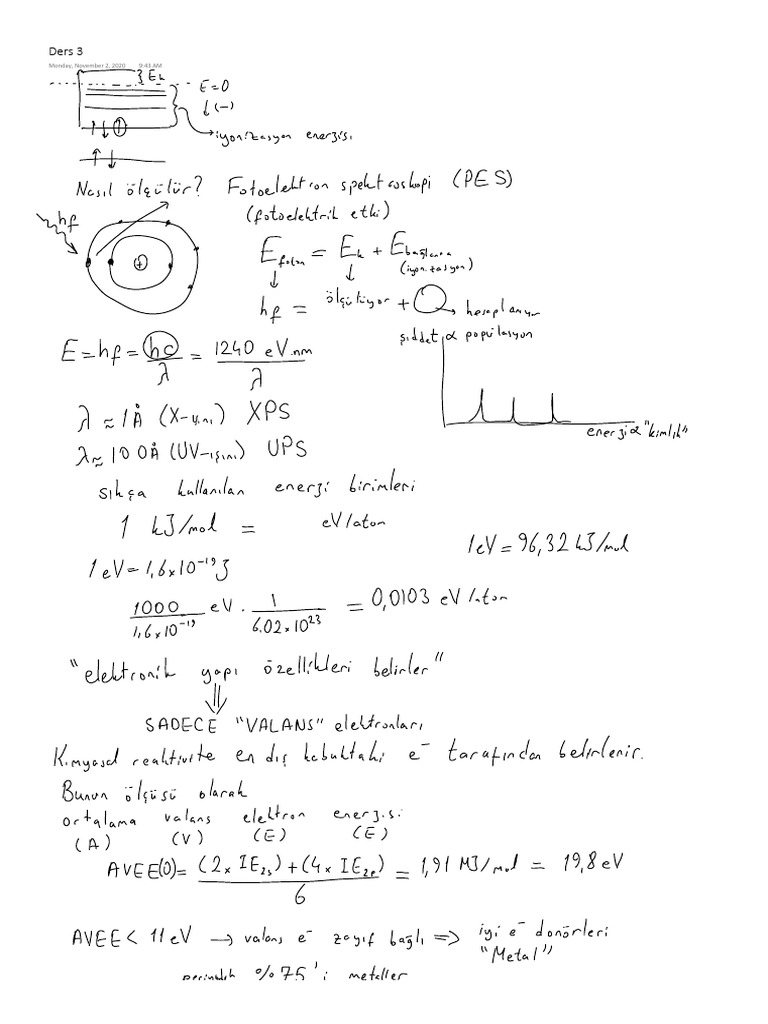 Ders 3
Monday, November 2, 2020 9:43 AM
Ek
E=0
↓(-)
iyonizasyon enerjisi
Nasıl ölçülür? Fotoelektron spektroskopi (PES)
(fotoelektrik etki)
hf
E foton = Ek + E bağlanma
(iyonizasyon)
hf = ölçülüyor + → hesaplanıyor
şiddet α popülasyon
E = hf = hc/λ = 1240 eV.nm/λ
enerji α "kimlik"
λ ≈ 1Å (X-ışını) XPS
λ ≈ 100Å (UV-ışını) UPS
sıkça kullanılan enerji birimleri
1 kJ/mol = eV/atom
1 eV = 96,32 kJ/mol
1 eV = 1,6x10⁻¹⁹ J
1000/1,6x10⁻¹⁹ eV . 1/6.02x10²³ = 0,0103 eV/atom
"elektronik yapı özellikleri belirler"
⇓
SADECE "VALANS" elektronları
Kimyasal reaktivite en dış kabuktaki e⁻ tarafından belirlenir.
Bunun ölçüsü olarak
ortalama valans elektron enerjisi
(A) (V) (E) (E)
AVEE(O) = (2x IE2s) + (4x IE2p)/6 = 1,91 MJ/mol = 19,8 eV
AVEE < 11 eV → valans e⁻ zayıf bağlı => iyi e⁻ donörleri
"Metal"
%75'i metaller